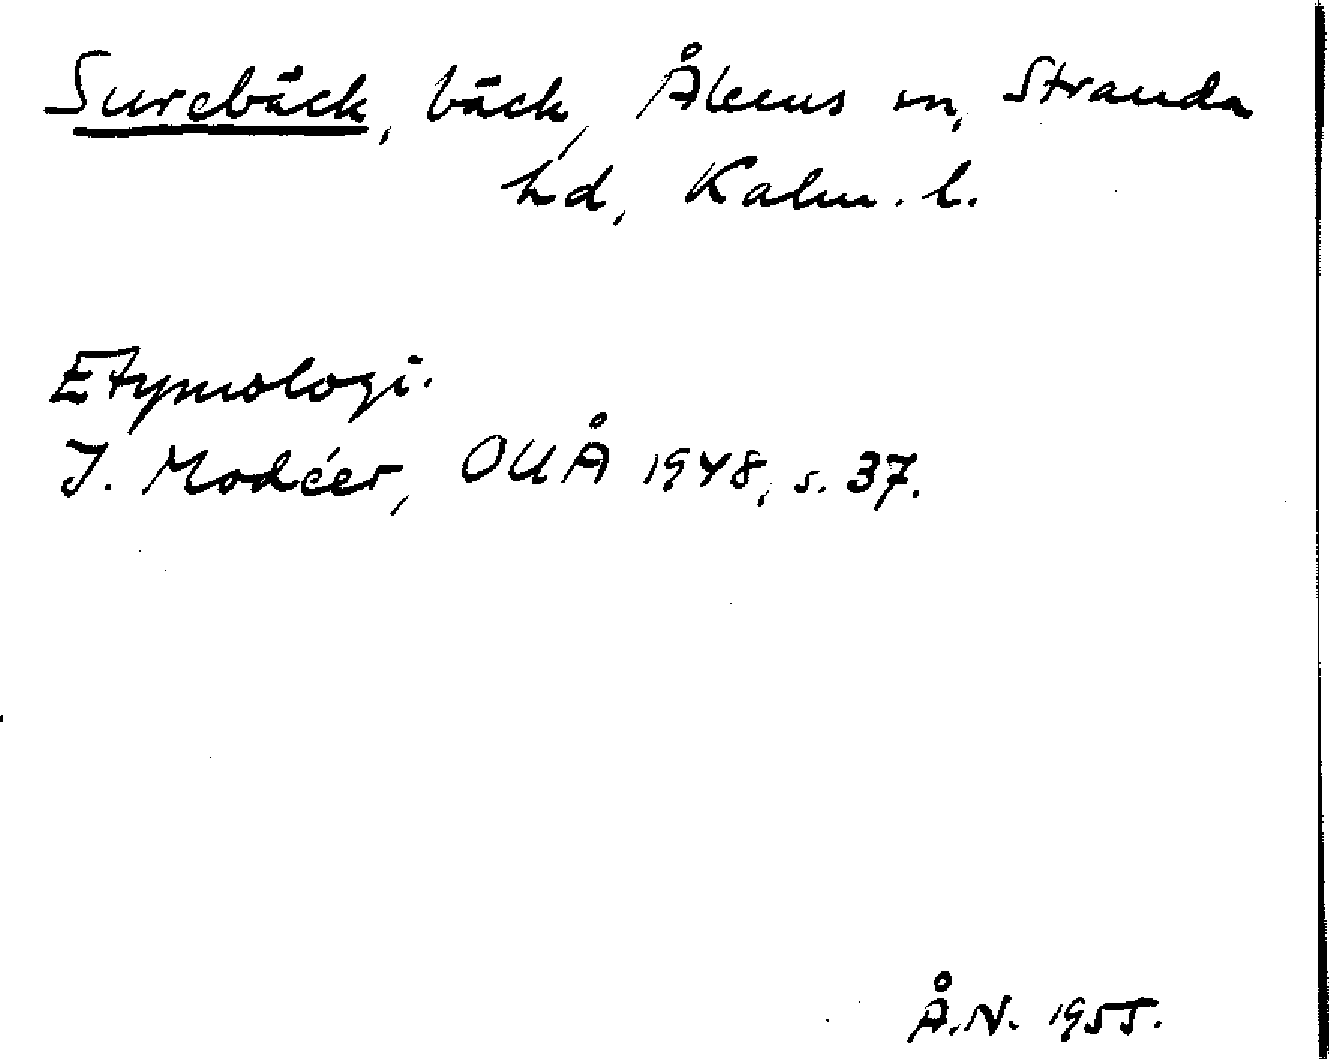 Surebäck, bäck, Ålems sn, Stranda
hd, Kalm. l.
Etymologi.
I. Modéer, OUÅ 1948, s. 37.
Å.N. 1955.